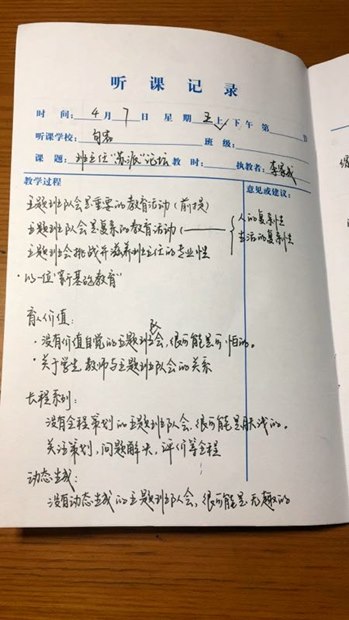 听课记录
时 间: 4 月 7 日 星 期 五 上 下 午 第 节
听课学校: 句容 班 级:
课 题: 班主任“苏派”论坛 教 时: 执教者: 李家成
教学过程
意见或建议:
主题班队会是重要的教育活动(前提)
主题班队会是复杂的教育活动(
人的复杂性
生活的复杂性
主题班会挑战并滋养班主任的专业性
·以一位“新基础教育”
育人价值:
·没有价值自觉的主题班队会,很可能是可怕的。
·关于学生 教师与主题班队会的关系
长程系列:
没有全程策划的主题班队会,很可能是肤浅的。
关注策划,问题解决,评价等全程
动态生成:
没有动态生成的主题班队会,很可能是无趣的